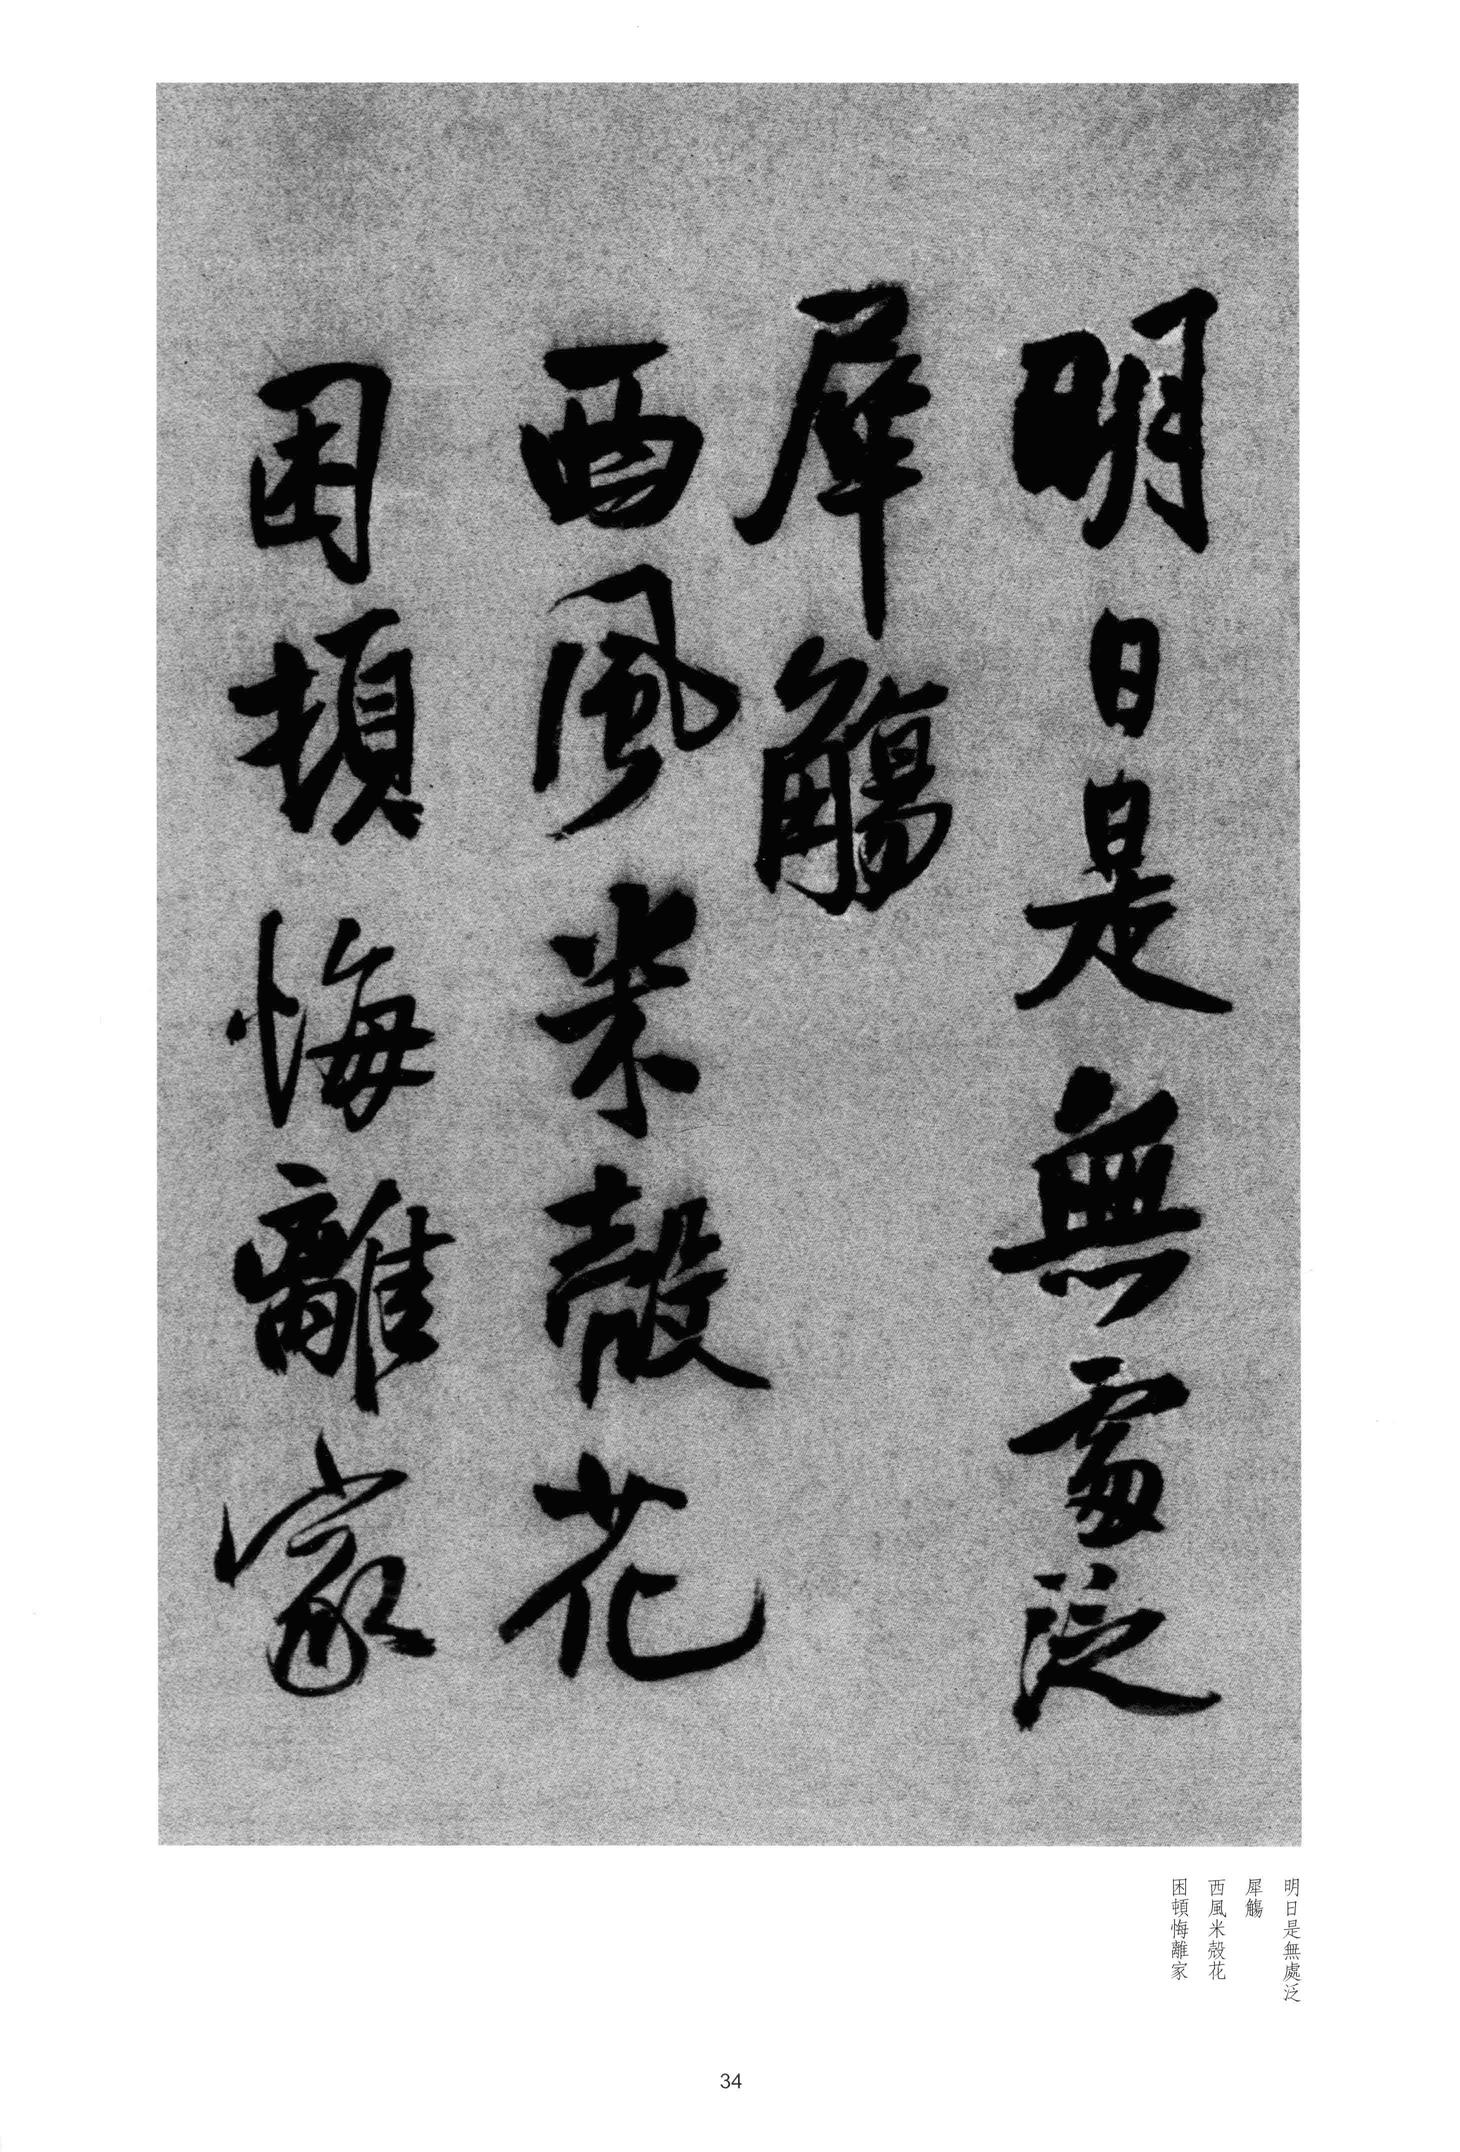 明日是無處泛
犀觴
西風米殼花
困頓悔離家
明日是無處泛
犀觴
西風米殼花
困頓悔離家
34